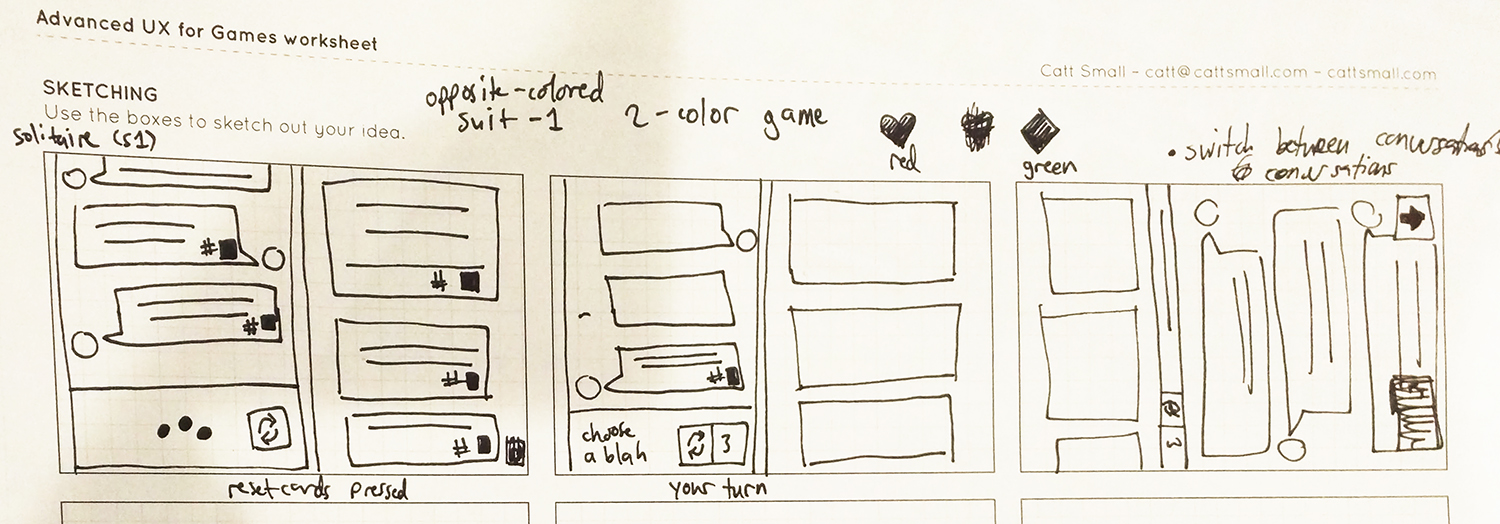 Advanced UX for Games worksheet
Catt Small - catt@cattsmall.com - cattsmall.com
SKETCHING
Use the boxes to sketch out your idea.
solitaire (s1)
opposite-colored
suit -1
2-color game
red
green
• switch between conversations
conversations
#
#
#
#
#
reset cards pressed
#
choose
a blah
3
your turn
3